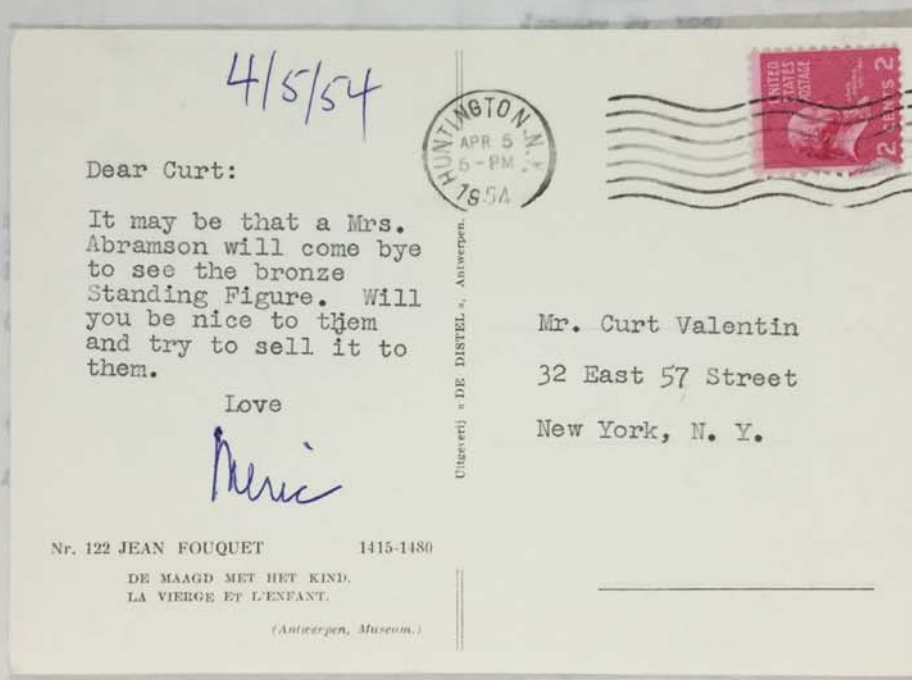 4/5/54
Dear Curt:
It may be that a Mrs.
Abramson will come bye
to see the bronze
Standing Figure. Will
you be nice to them
and try to sell it to
them.
Love
Meric
Nr. 122 JEAN FOUQUET 1415-1480
DE MAAGD MET HET KIND.
LA VIERGE ET L'ENFANT.
(Antwerpen, Museum.)
Uitgeverij « DE DISTEL », Antwerpen.
HUNTINGTON, N.Y.
APR 5
6-PM
1954
UNITED
STATES
POSTAGE
2 CENTS 2
Mr. Curt Valentin
32 East 57 Street
New York, N. Y.